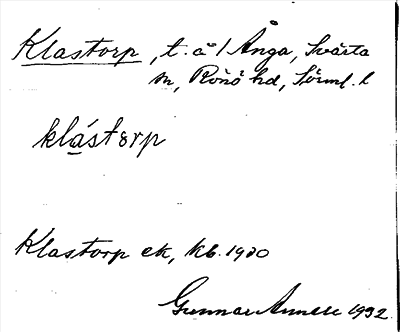 Klastorp, t. å 1 Ånga, Svärta
sn, Rönö hd, Sörml. l
klást8rp
Klastorp ek, kb. 1930
Gunnar 1932